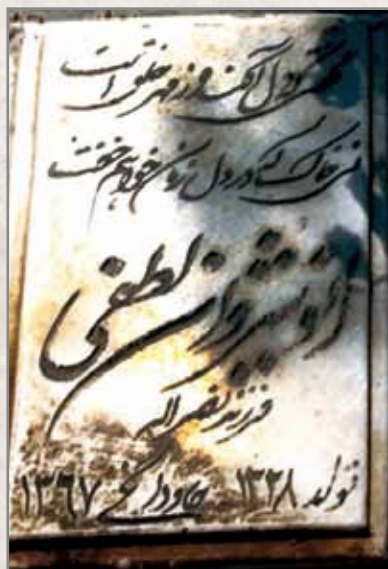 دل آکنده ز مهر خلق است
نی خاک که در دل زمان خواهم خفت
انوشیروان لطفی
فرزند نصرالله
تولد ۱۳۲۸ جاودانگی ۱۳۶۷